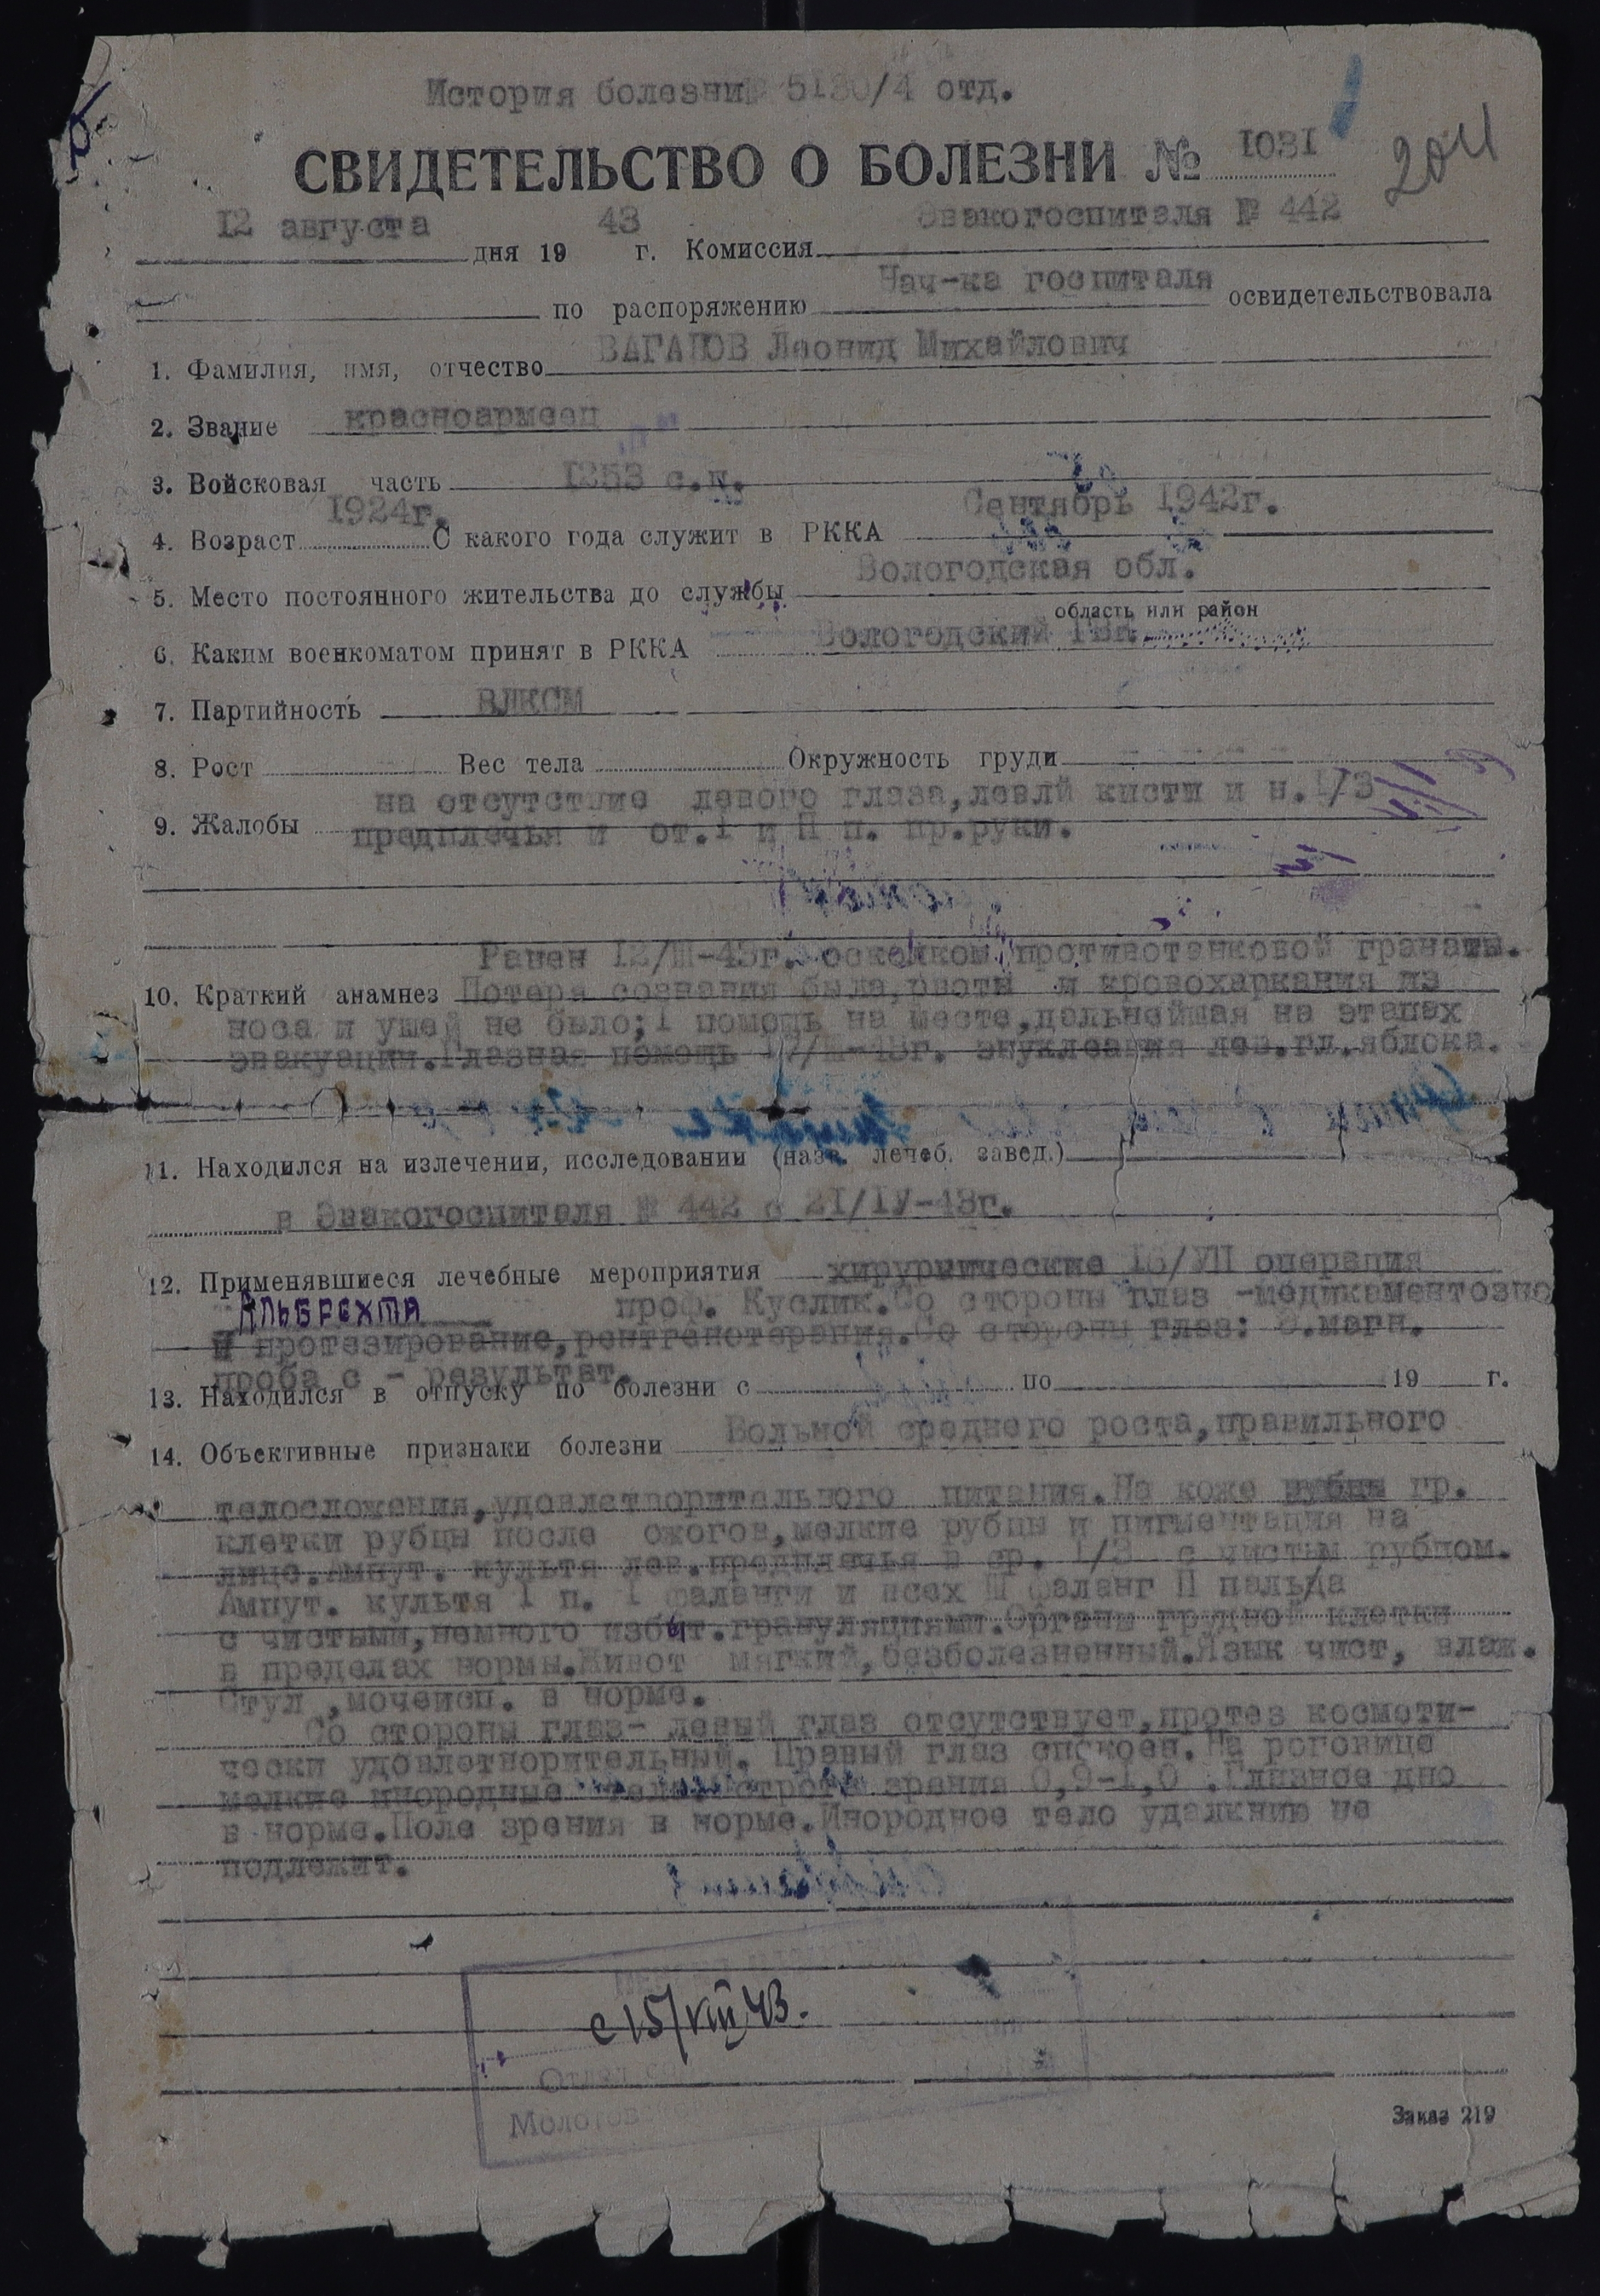 История болезни № 5130/4 отд.
СВИДЕТЕЛЬСТВО О БОЛЕЗНИ № 1031
204
12 августа дня 1943 г. Комиссия Эвакогоспиталя № 442
по распоряжению Нач-ка госпиталя освидетельствовала
1. Фамилия, имя, отчество ВАГАНОВ Леонид Михайлович
2. Звание красноармеец
3. Войсковая часть 1253 с.п.
4. Возраст 1924г. С какого года служит в РККА Сентябрь 1942г.
5. Место постоянного жительства до службы Вологодская обл.
область или район
6. Каким военкоматом принят в РККА Вологодский ГВК.
7. Партийность ВЛКСМ
8. Рост Вес тела Окружность груди
9. Жалобы на отсутствие левого глаза,левлй кисти и н.1/3
предплечья и от.1 и П п. пр.руки.
Ранен 12/Ш-43г. осколком противотанковой гранаты.
10. Краткий анамнез Потеря сознания была,рвоты и кровохаркания из
носа и ушей не было;1 помощь на месте,дальнейшая на этапах
эвакуации.Глазная помощь 43г. энуклеация лев.гл.яблока.
11. Находился на излечении, исследовании (назв. лечеб. завед.)
в Эвакогоспиталя № 442 с 21/1У-43г.
12. Применявшиеся лечебные мероприятия хирургические 16/УП операция
Альбрехта проф. Куслик.Со стороны глаз -медикаментозно
и протезирование,рентгенотерапия.Со стороны глаз: .магн.
проба с - результат.
13. Находился в отпуску по болезни с по 19 г.
14. Объективные признаки болезни Больной среднего роста,правильного
телосложения,удовлетворительного питания.На коже рубцы гр.
клетки рубцы после ожогов,мелкие рубцы и пигментация на
лице.Ампут. культя лев.предплечья в ср. 1/3 с чистым рубцом.
Ампут. культя 1 п. 1 фаланги и всех Ш фаланг П пальца
с чистыми,немного избыт.грануляциями.Органы грудной клетки
в пределах нормы.Живот мягкий,безболезненный.Язык чист, влаж.
Стул ,мочеисп. в норме.
Со стороны глаз- левый глаз отсутствует,протез космети-
чески удовлетворительный. Правый глаз спокоен.На роговице
мелкие инородные тела. Острота зрения 0,9-1,0 .Глазное дно
в норме.Поле зрения в норме.Инородное тело удалкнию не
подлежит.
с 15/VIII 43.
Отдел
Молотов
Заказ 219